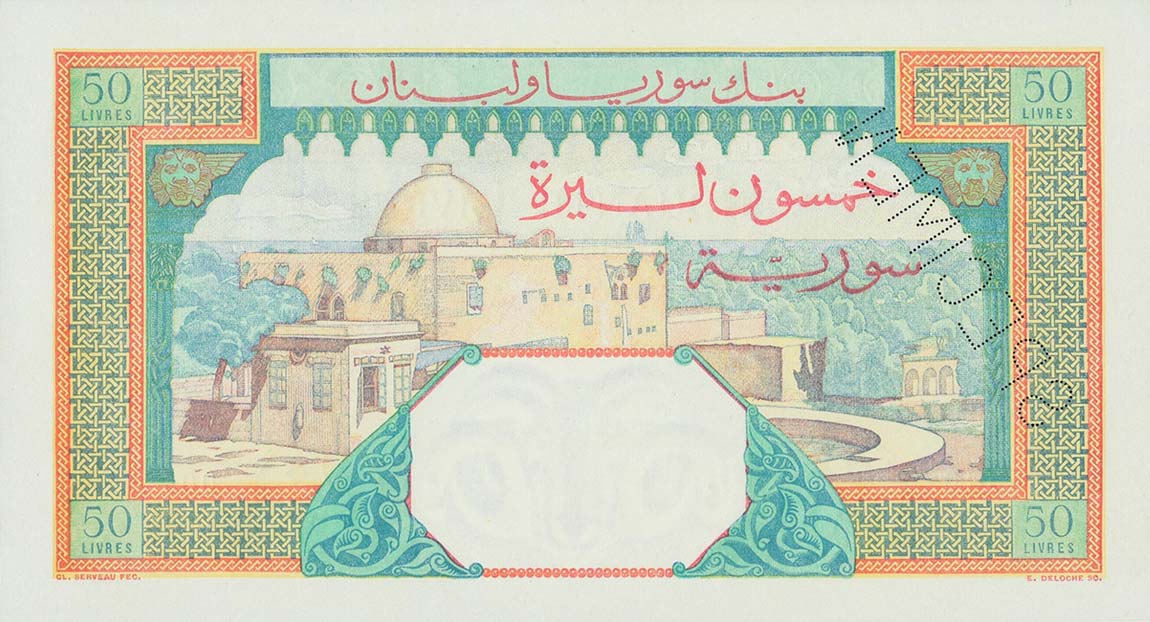 بنك سوريا ولبنان
50 LIVRES
50 LIVRES
خمسون ليرة
سورية
SPECIMEN
50 LIVRES
50 LIVRES
CL. SERVEAU FEC.
E. DELOCHE SC.